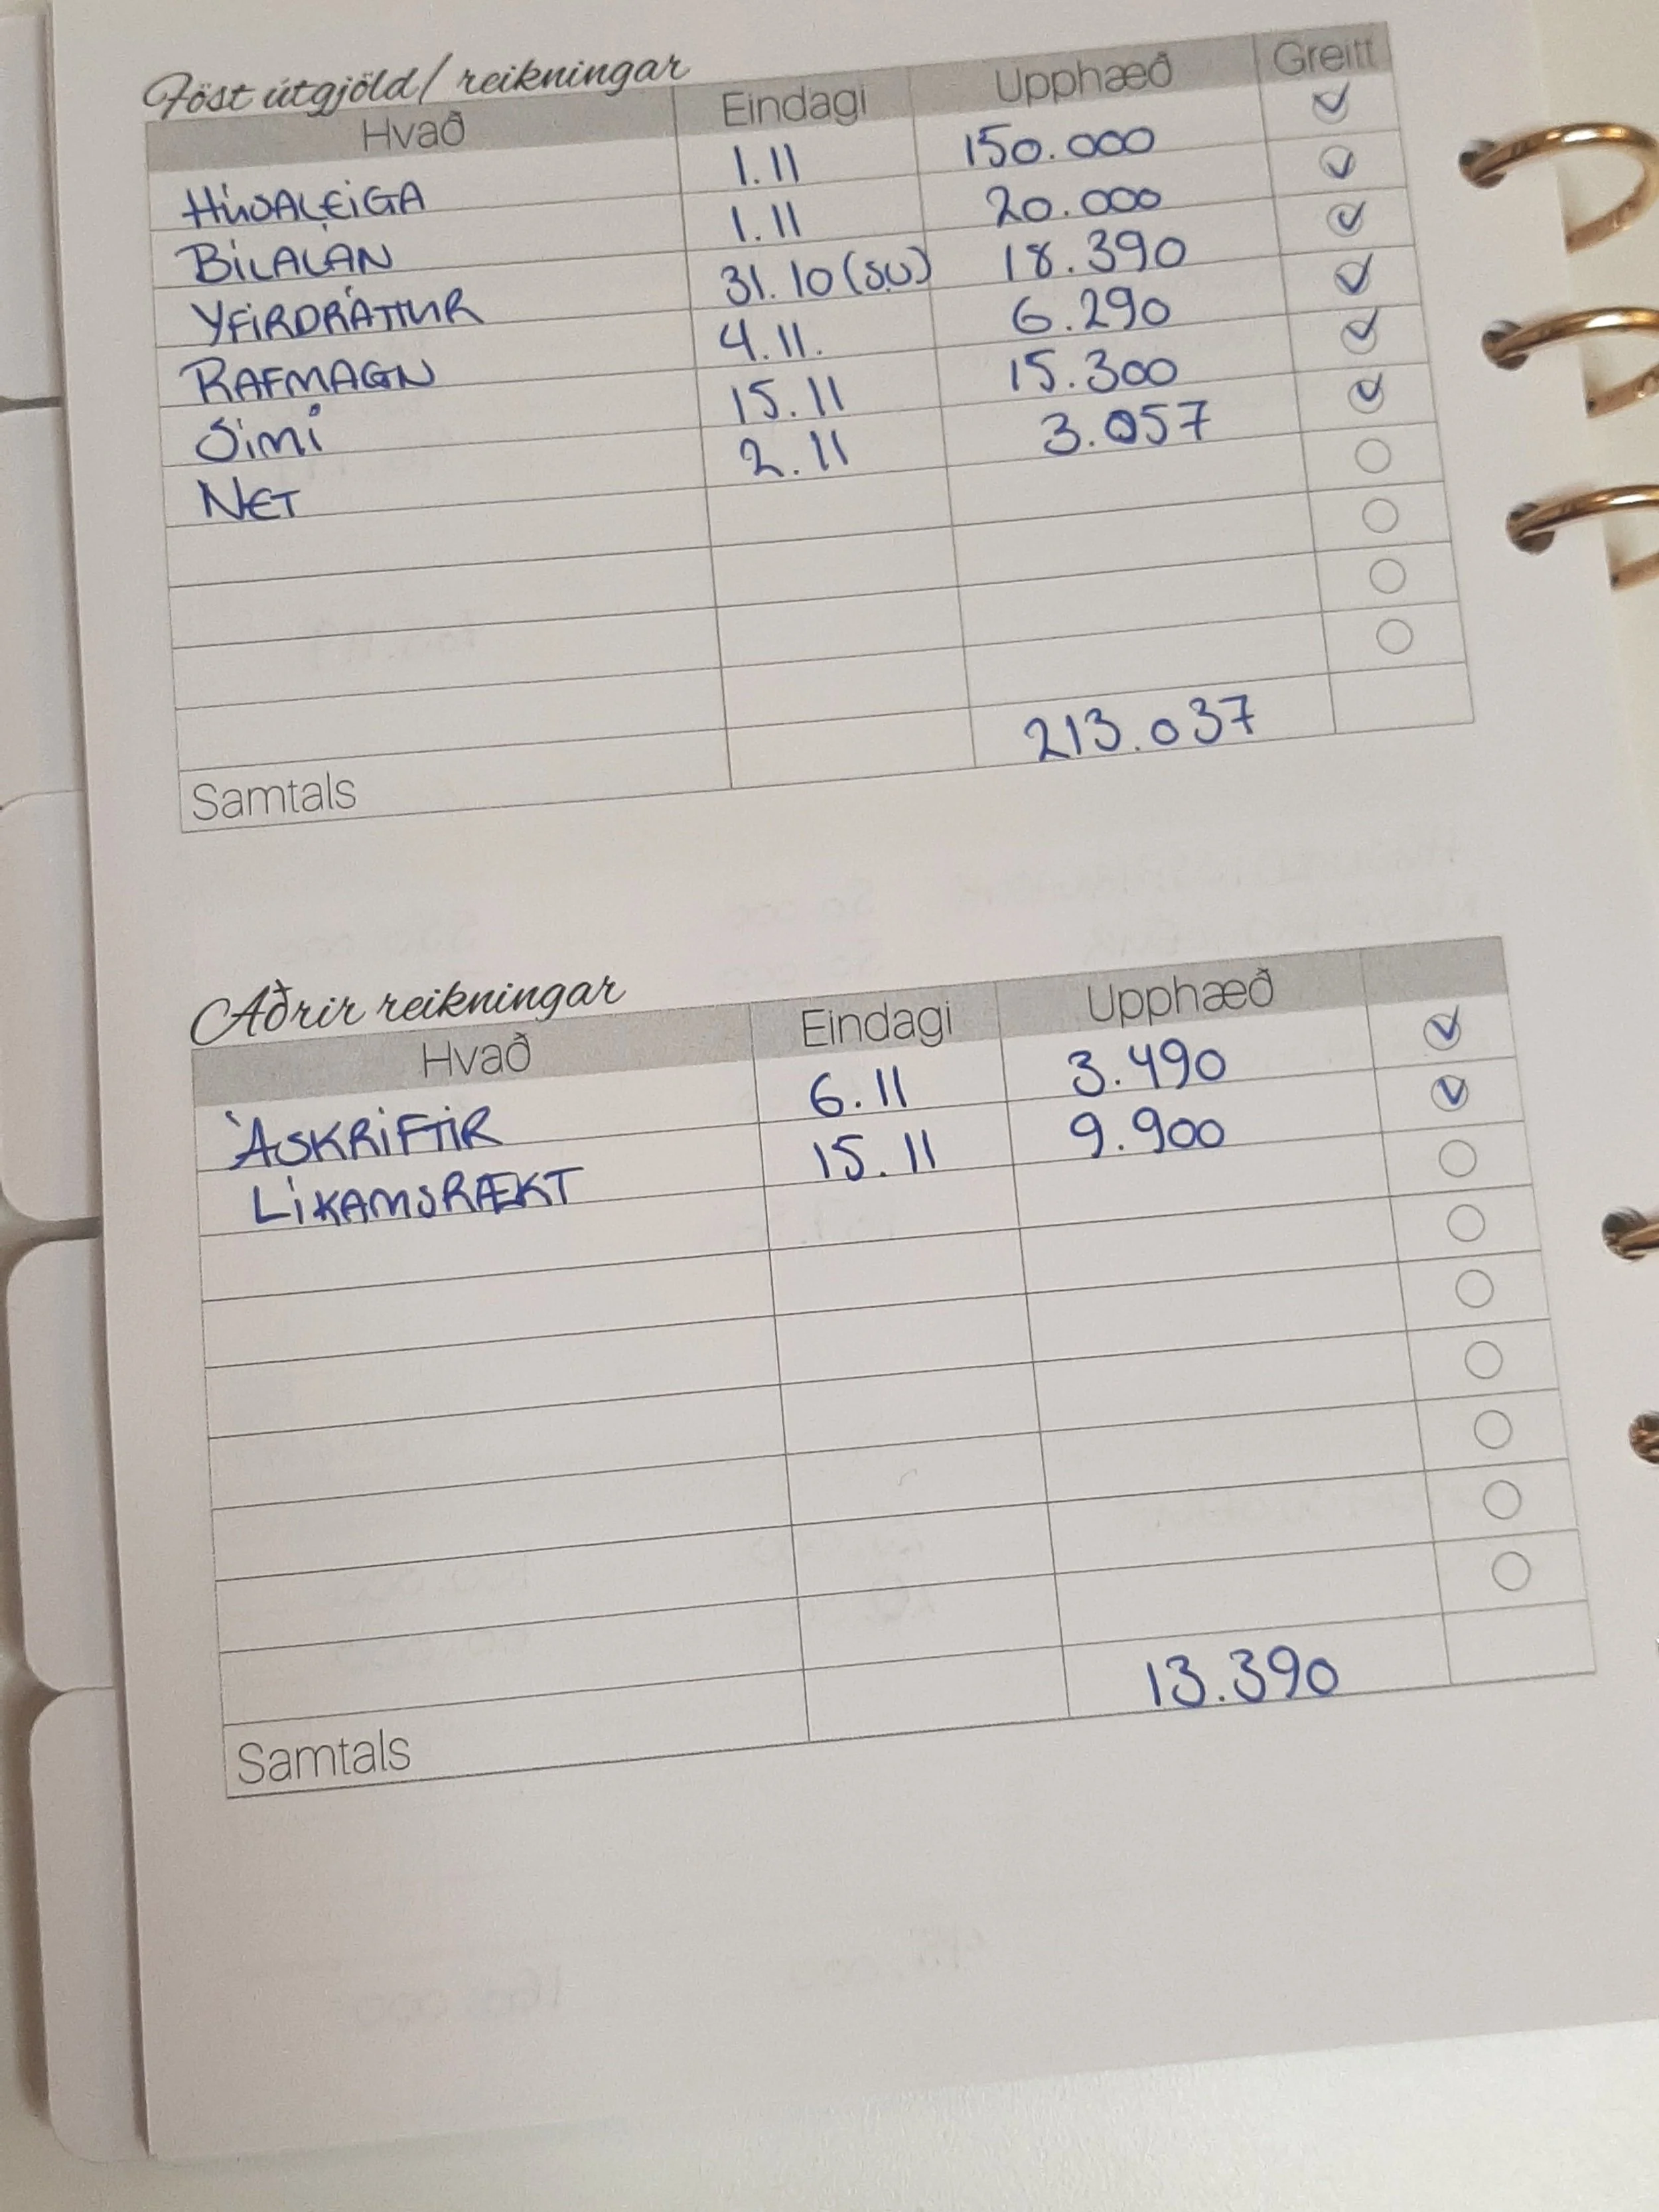 Föst útgjöld/ reikningar
Hvað Eindagi Upphæð Greitt
HÚSALEIGA 1.11 150.000
BÍLALÁN 1.11 20.000
YFIRDRÁTTUR 31.10 (SU) 18.390
RAFMAGN 4.11. 6.290
SÍMI 15.11 15.300
NET 2.11 3.057
Samtals 213.037
Aðrir reikningar
Hvað Eindagi Upphæð
ÁSKRIFTIR 6.11 3.490
LÍKAMSRÆKT 15.11 9.900
Samtals 13.390